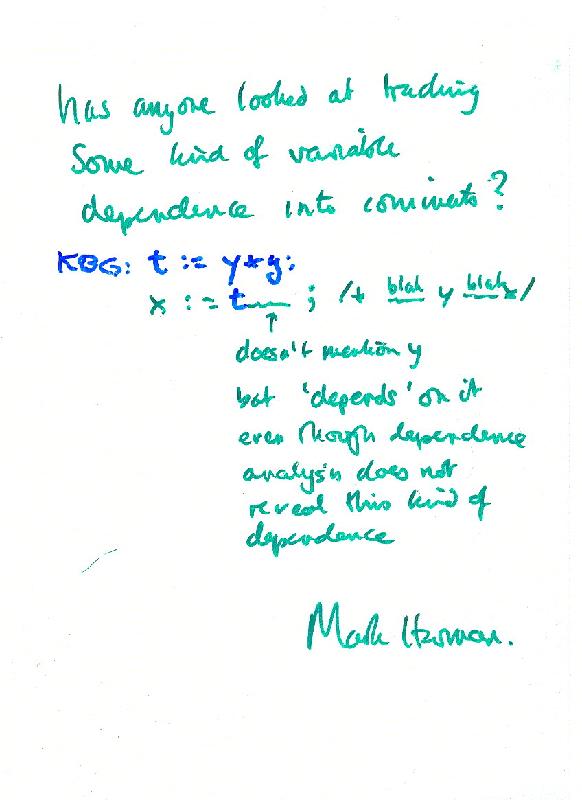 has anyone looked at tracking
Some kind of variable
dependence into comments?
KBG: t := y*y;
x := t___ ; /* blah y blah */
↑
doesn't mention y
but 'depends' on it
even though dependence
analysis does not
reveal this kind of
dependence
Mark Harman.